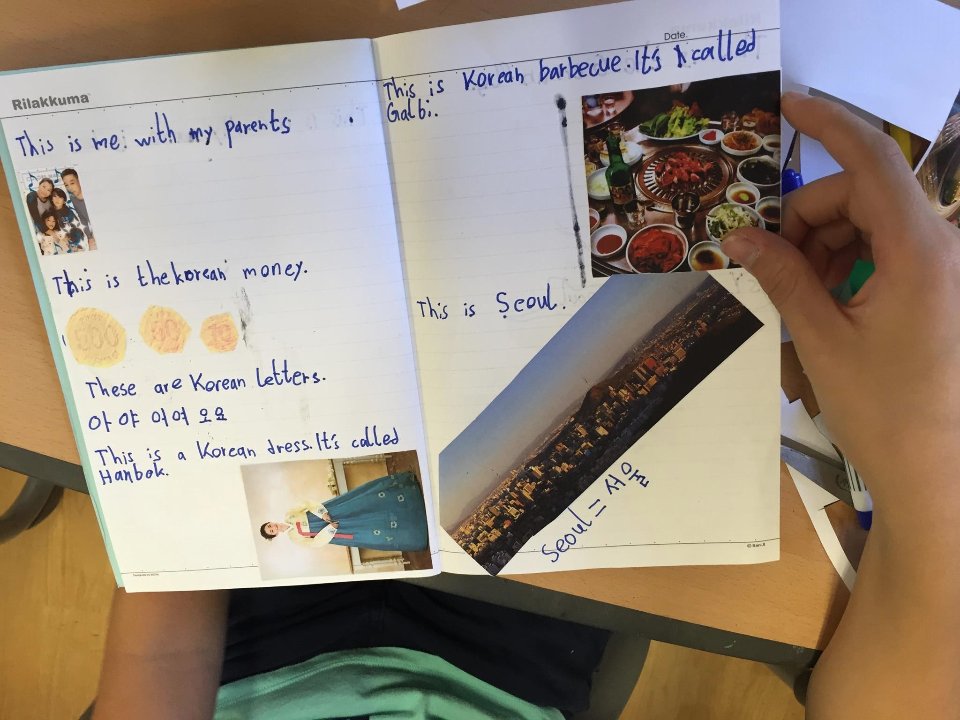 Rilakkuma
This is me with my parents
This is the korean money.
500 50 10
These are Korean Letters.
아 야 어 여 오 요
This is a Korean dress. It's called
Hanbok.
Date.
This is Korean barbecue. It's called
Galbi.
This is Seoul.
Seoul = 서울